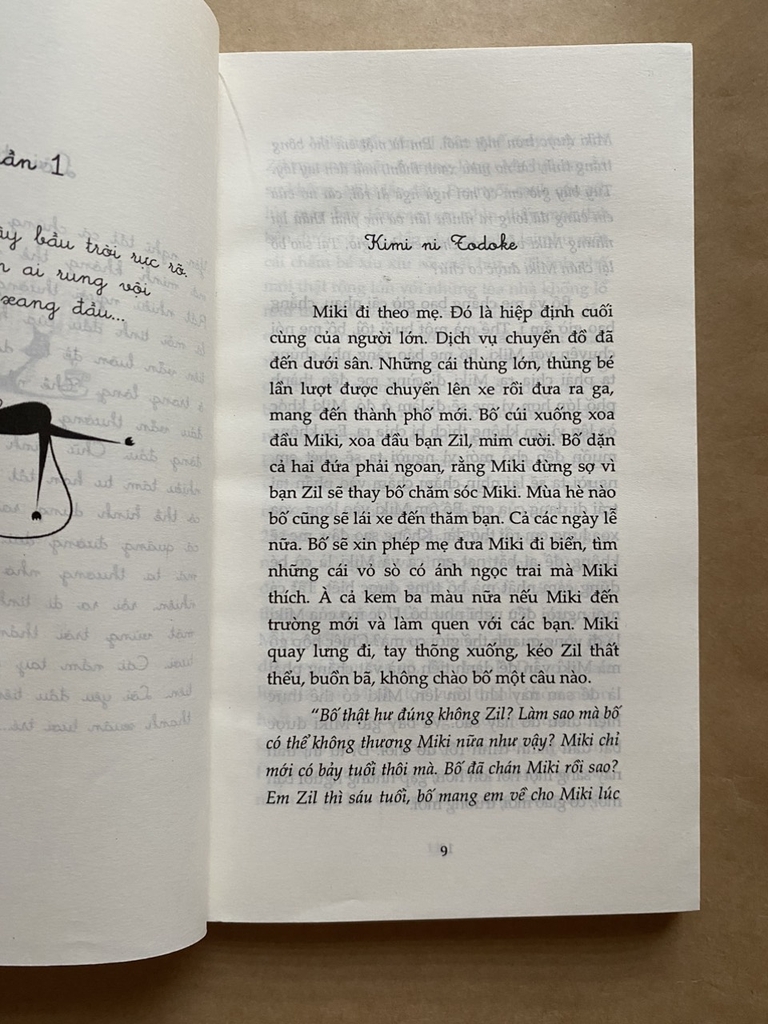 ần 1
ây bầu trời rực rỡ.
ai rung vội
xang đầu...
Kimi ni Todoke
Miki đi theo mẹ. Đó là hiệp định cuối
cùng của người lớn. Dịch vụ chuyển đồ đã
đến dưới sân. Những cái thùng lớn, thùng bé
lần lượt được chuyển lên xe rồi đưa ra ga,
mang đến thành phố mới. Bố cúi xuống xoa
đầu Miki, xoa đầu bạn Zil, mỉm cười. Bố dặn
cả hai đứa phải ngoan, rằng Miki đừng sợ vì
bạn Zil sẽ thay bố chăm sóc Miki. Mùa hè nào
bố cũng sẽ lái xe đến thăm bạn. Cả các ngày lễ
nữa. Bố sẽ xin phép mẹ đưa Miki đi biển, tìm
những cái vỏ sò có ánh ngọc trai mà Miki
thích. À cả kem ba màu nữa nếu Miki đến
trường mới và làm quen với các bạn. Miki
quay lưng đi, tay thõng xuống, kéo Zil thất
thểu, buồn bã, không chào bố một câu nào.
“Bố thật hư đúng không Zil? Làm sao mà bố
có thể không thương Miki nữa như vậy? Miki chỉ
mới có bảy tuổi thôi mà. Bố đã chán Miki rồi sao?
Em Zil thì sáu tuổi, bố mang em về cho Miki lúc
9